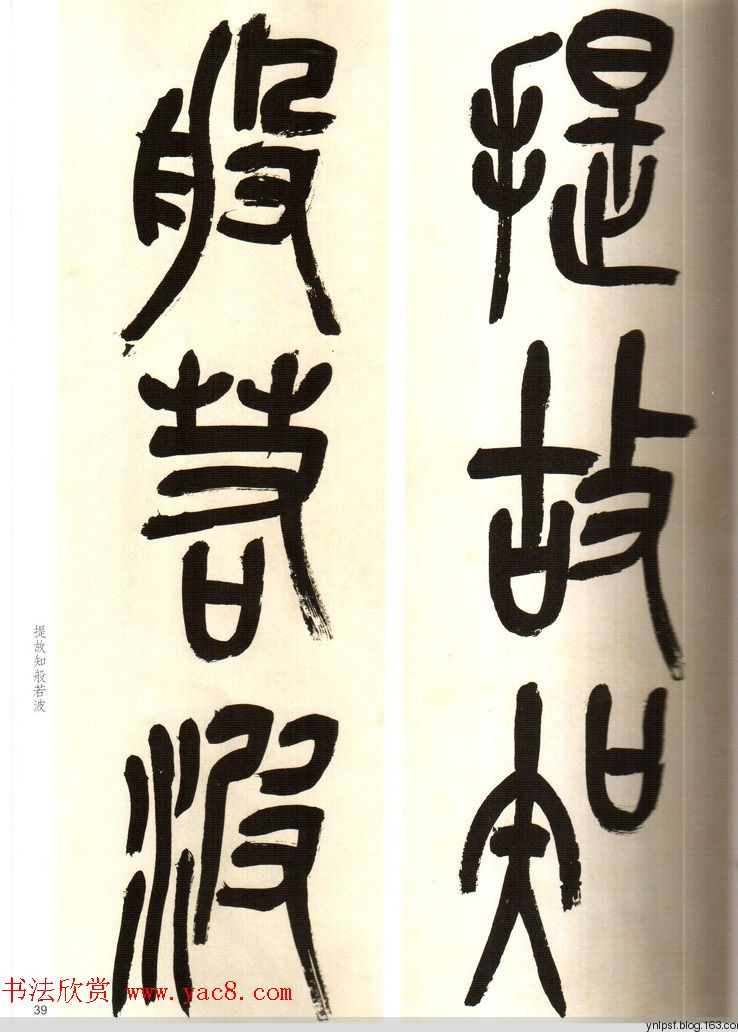 提故知
般若波
提故知般若波
39
书法欣赏 www.yac8.com
ynlpsf.blog.163.co